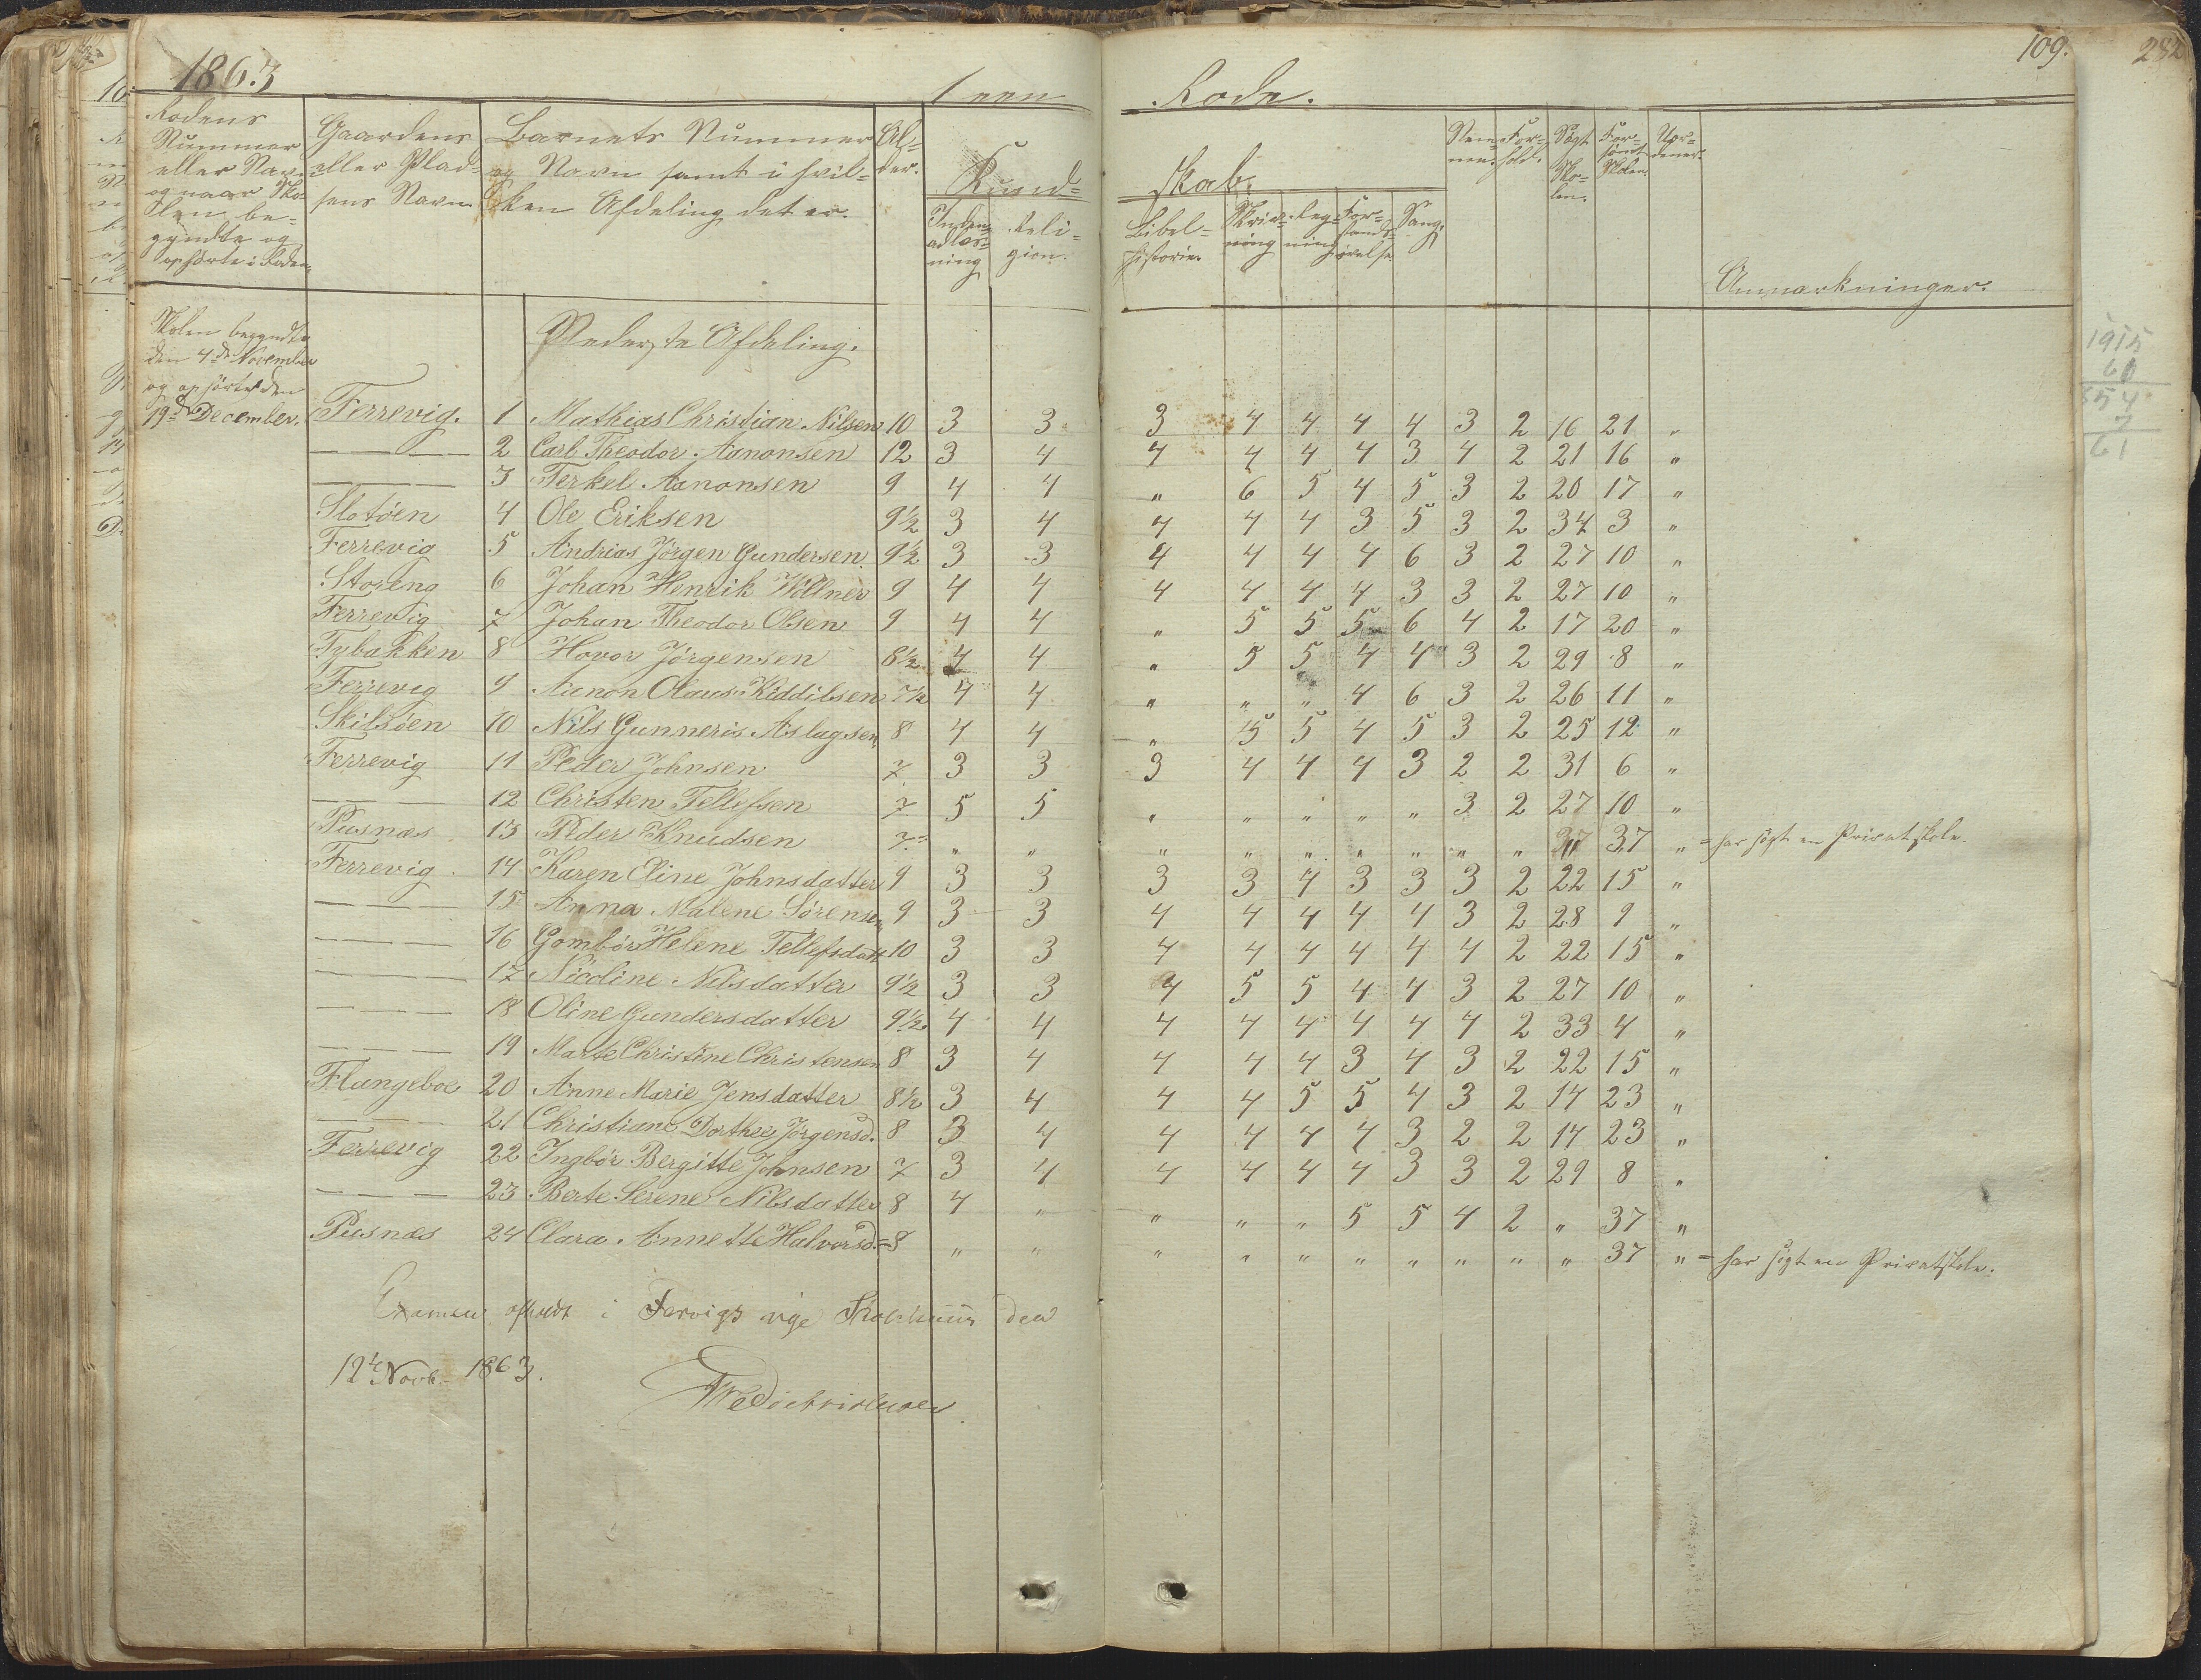 1863 1een Rode. 109. 282
Rodens Nummer eller Navn og naar Skolen begyndte og ophørte i Roden.
Gaardens eller Pladsens Navn.
Barnets Nummer og Navn samt i hvilken Afdeling det er.
Alder.
Kundskab.
Indenadlæsning
Religion.
Bibelhistorie.
Skrivning
Regning
Forstandsøvelse
Sang.
Nemme.
Forhold.
Søgt Skolen.
Forsømt Skolen.
Anmærkninger.
Skolen begyndte
den 4de November
og ophørte den
19de December.
Nederste Afdeling.
Ferrevig. 1 Mathias Christian Nilsen 10 3 3 3 4 4 4 4 3 2 16 21 "
— — — 2 Carl Theodor Aanonsen 12 3 4 4 4 4 4 3 4 2 21 16 "
— — — 3 Terkel Aanonsen 9 4 4 " 6 5 4 5 3 2 20 17 "
Slotøen 4 Ole Eriksen 9½ 3 4 4 4 4 3 5 3 2 34 3 "
Ferrevig 5 Andrias Jörgen Gundersen 9½ 3 3 4 4 4 4 6 3 2 27 10 "
Storeng 6 Johan Henrik Wöllner 9 4 4 4 4 4 4 3 3 2 27 10 "
Ferrevig 7 Johan Theodor Olsen 9 4 4 " 5 5 5 6 4 2 17 20 "
Tybakken 8 Hovor Jörgensen 8½ 4 4 " 5 5 4 4 3 2 29 8 "
Ferrevig 9 Aanon Olaus Kiddilsen 7½ 4 4 " " " 4 6 3 2 26 11 "
Skilsöen 10 Nils Gunneris Aslagsen 8 4 4 " 5 5 4 5 3 2 25 12 "
Ferrevig 11 Peder Johnsen 7 3 3 3 4 4 4 3 2 2 31 6 "
— — — 12 Christen Tellefsen 7 5 5 " " " " " 3 2 27 10 "
Pusnæs 13 Peder Knudsen 7 " " " " " " " " " 37 " = har søgt en Privatskole.
Ferrevig 14 Karen Eline Johnsdatter 9 3 3 3 3 4 3 3 3 2 22 15 "
— — — 15 Anna Malene Sörensen 9 3 3 4 4 4 4 4 3 2 28 9 "
— — — 16 Gombör Helene Tellefsdatt 10 3 3 4 4 4 4 4 4 2 22 15 "
— — — 17 Nicoline Nilsdatter 9½ 3 3 4 5 5 4 4 3 2 27 10 "
— — — 18 Oline Gundersdatter 9½ 4 4 4 4 4 4 4 4 2 33 4 "
— — — 19 Marte Christine Christensen 8 3 4 4 4 4 3 4 3 2 22 15 "
Flangeboe 20 Anne Marie Jensdatter 8½ 3 4 4 4 5 5 4 3 2 14 23 "
— — — 21 Christiane Dorthee Jörgensd. 8 3 4 4 4 4 4 3 2 2 14 23 "
Ferrevig 22 Ingbör Bergitte Johnsen 7 3 4 4 4 4 4 3 3 2 29 8 "
— — — 23 Berte Serene Nilsdatter 8 4 " " " " 5 5 4 2 " 37 "
Pusnæs 24 Clara Annette Halvorsd. 8 " " " " " " " " " " 37 " = har søgt en Privatskole.
Examen afholdt i Fervigs nye Skolehuus den
12te Novb. 1863.
1915
60
54
7
61